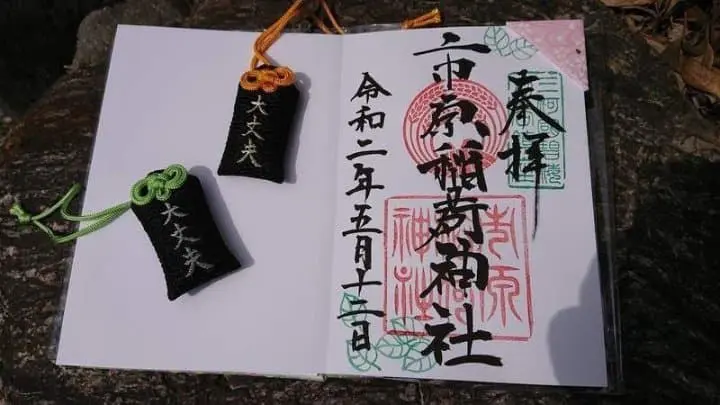 奉拝
市原稲荷神社
市原
神社
令和二年五月十二日
大丈夫
大丈夫